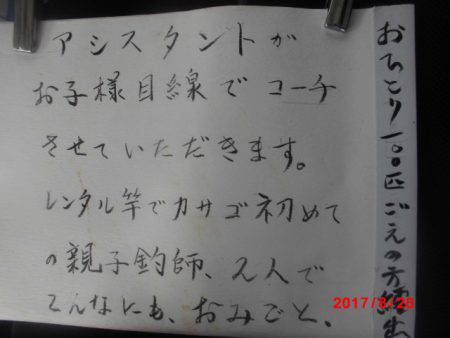 アシスタントが
お子様目線でコーチ
させていただきます。
レンタル竿でカサゴ初めて
の親子釣師、2人で
こんなにも、おみごと、
おちこり一〇〇匹ごえの方続出
2017/8/28